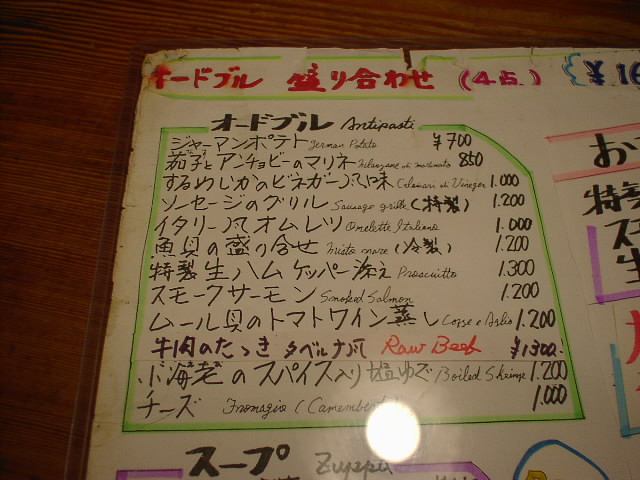 オードブル 盛り合わせ (4点) ¥16
オードブル Antipasti
ジャーマンポテト German Potato ¥700
茄子とアンチョビーのマリネ 850
するめいかのビネガー風味 Calamari di Vineger 1.000
ソーセージのグリル Sausage grille (特製) 1.200
イタリー風オムレツ Omelette Italiano 1.000
魚貝の盛り合せ misto mare (冷製) 1.200
特製生ハムケッパー添え Prosciutto 1.300
スモークサーモン Smoked Salmon 1.200
ムール貝のトマトワイン蒸し Cozze e Aglio 1.200
牛肉のたたき タベルナ風 Raw Beef ¥1300.
小海老のスパイス入り塩ゆで Boiled Shrimp 1.200
チーズ Fromagio (Camembert) 1.000
スープ Zuppa
お
特製
ス
生